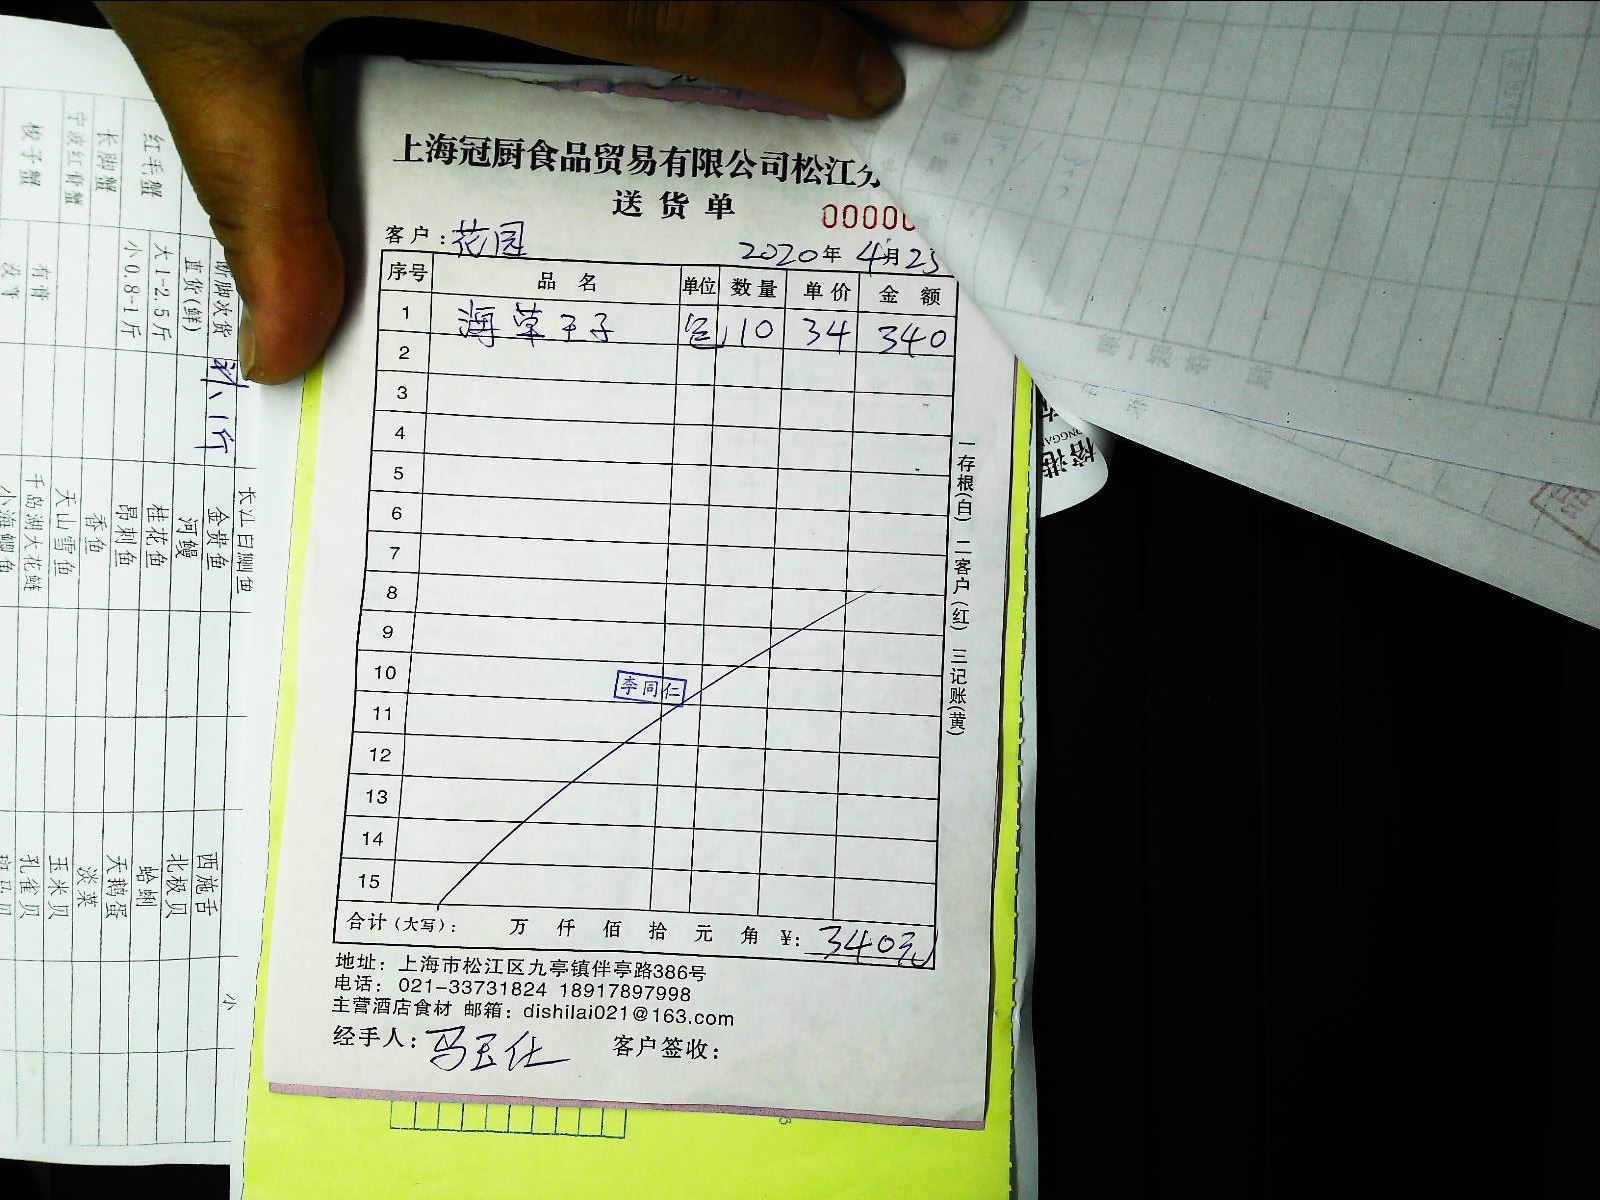 上海冠厨食品贸易有限公司松江
送货单
0000
客户：花园 2020年4月25
序号 品名 单位 数量 单价 金额
1 海草干子 包 10 34 340
2
3
4
5
6
7
8
9
10
李同仁
11
12
13
14
15
合计（大写）： 万 仟 佰 拾 元 角 ¥：340元
地址：上海市松江区九亭镇伴亭路386号
电话：021-33731824 18917897998
主营酒店食材 邮箱：dishilai021@163.com
经手人：马玉仕 客户签收：
一存根(白) 二客户(红) 三记账(黄)
红毛蟹
长脚蟹
宁波红膏蟹
梭子蟹
断脚次货
直货(鲜)
大1-2.5斤
小0.8-1斤
有膏
长江白鮰鱼
金贵鱼
河鳗
桂花鱼
昂刺鱼
香鱼
天山雪鱼
千岛湖大花鲢
西施舌
北极贝
蛤蜊
天鹅蛋
淡菜
玉米贝
孔雀贝
斑马贝
小